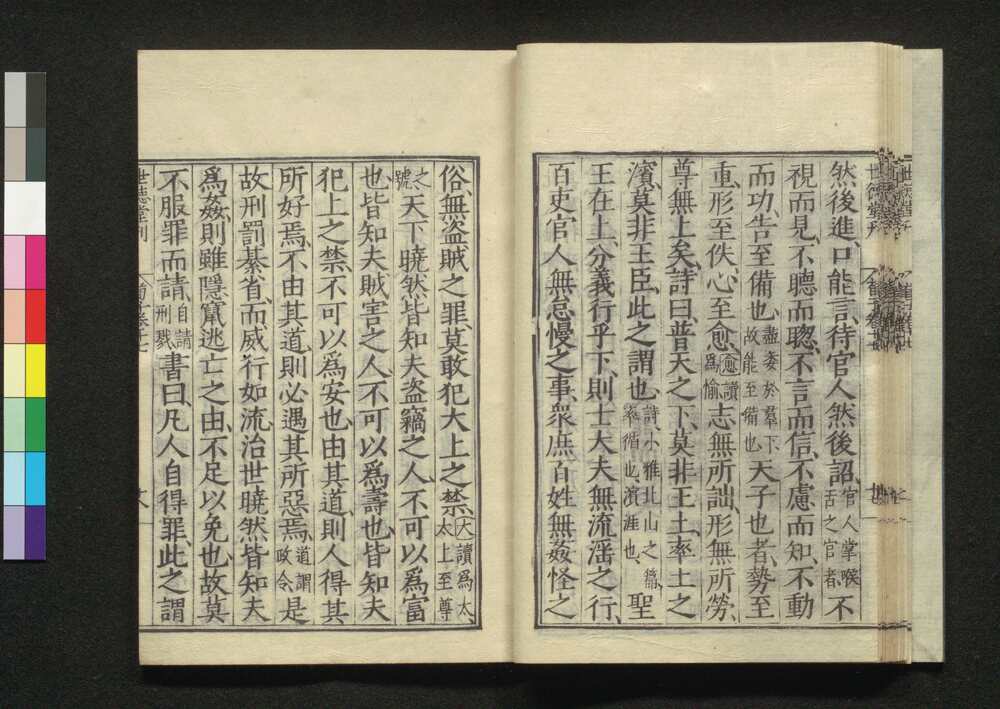 然後進、口能言、待官人然後詔、官人、掌喉舌之官者、不
視而見、不聽而聰、不言而信、不慮而知、不動
而功、告至備也、盡委於羣下、故能至備也、天子也者、勢至
重、形至佚、心至愈、愈讀爲愉、志無所詘、形無所勞、
尊無上矣、詩曰、普天之下、莫非王土、率土之
濱、莫非王臣、此之謂也、詩、小雅北山之篇、率循也、濱、涯也、聖
王在上、分義行乎下、則士大夫無流淫之行、
百吏官人無怠慢之事、衆庶百姓無姦怪之
俗、無盜賊之罪、莫敢犯大上之禁、大讀爲太、太上至尊
之號、天下曉然、皆知夫盜竊之人、不可以爲富
也、皆知夫賊害之人不可以爲壽也、皆知夫
犯上之禁、不可以爲安也、由其道、則人得其
所好焉、不由其道、則必遇其所惡焉、道謂政令、是
故刑罰綦省、而威行如流、治世曉然皆知夫
爲姦、則雖隱竄逃亡之由、不足以免也、故莫
不服罪而請、自請刑戮、書曰、凡人自得罪、此之謂
世德堂刊